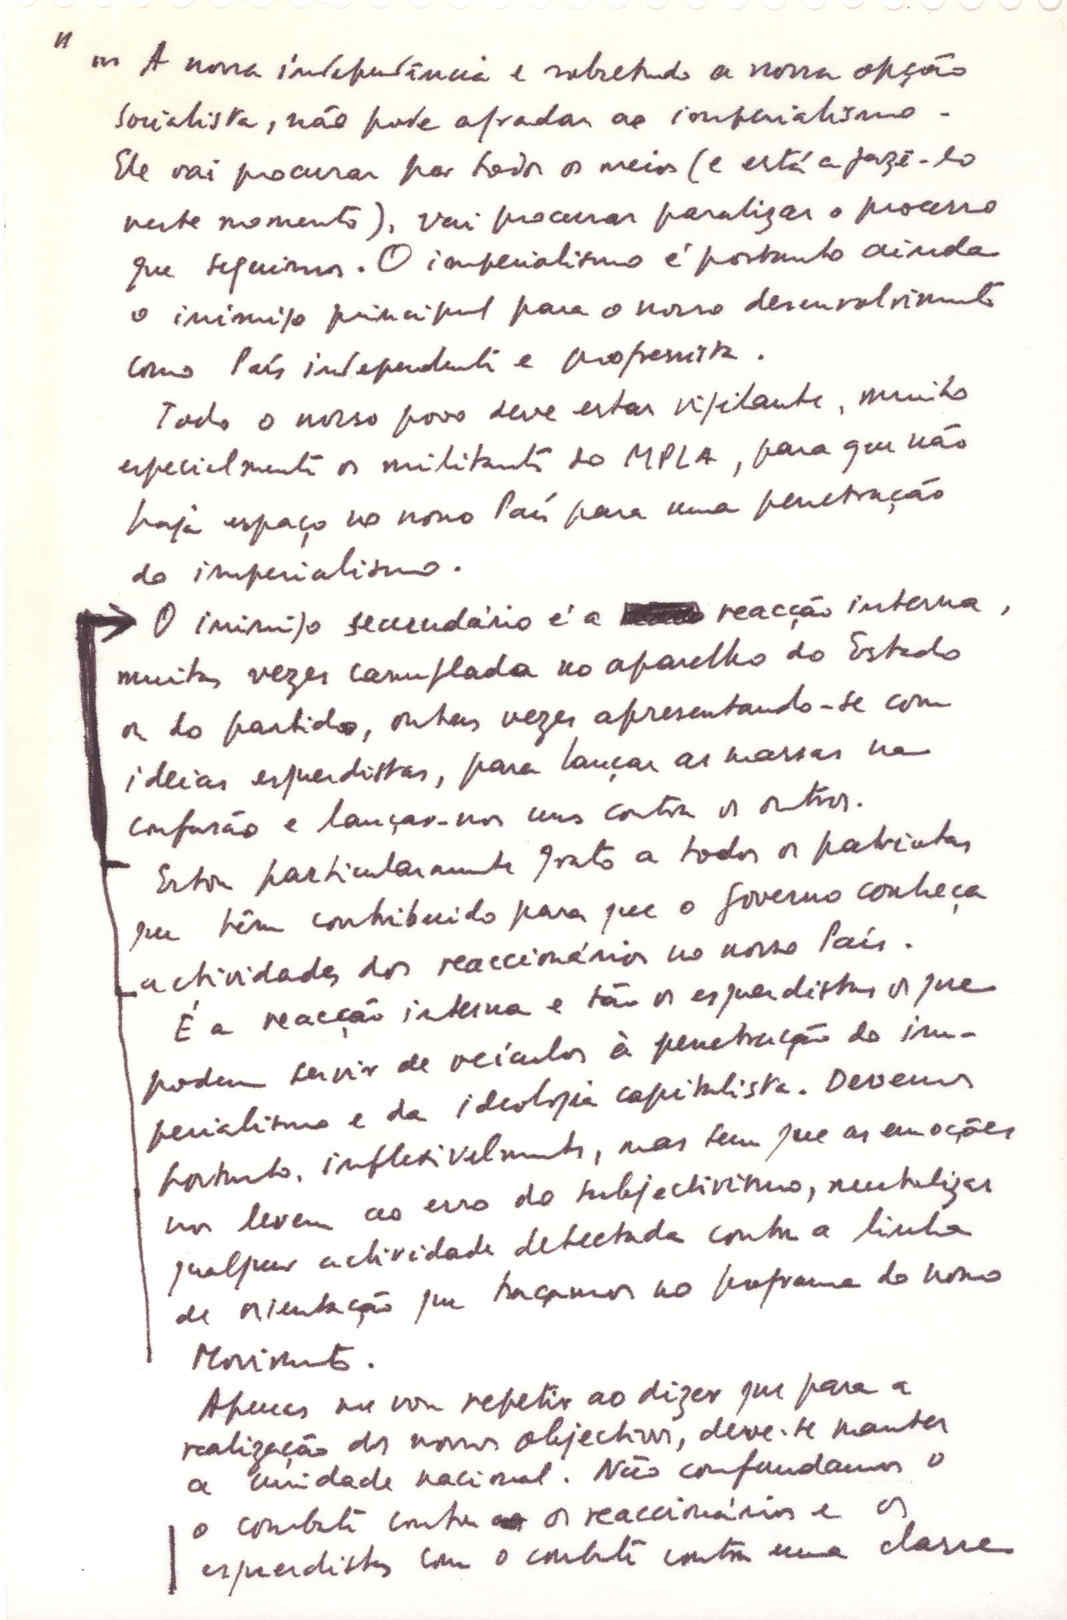 "
... A nossa independência e sobretudo a nossa opção
socialista, não pode agradar ao imperialismo.
Ele vai procurar por todos os meios (e está a fazê-lo
neste momento), vai procurar paralizar o processo
que seguimos. O imperialismo é portanto ainda
o inimigo principal para o nosso desenvolvimento
como País independente e progressista.
Todo o nosso povo deve estar vigilante, muito
especialmente os militantes do MPLA, para que não
haja espaço no nosso País para uma penetração
do imperialismo.
O inimigo secundário é a reacção interna,
muitas vezes camuflada no aparelho do Estado
ou do partido, outras vezes apresentando-se com
ideias esquerdistas, para lançar as massas na
confusão e lançar-nos uns contra os outros.
Estou particularmente grato a todos os patriotas
que têm contribuido para que o Governo conheça
actividades dos reaccionários no nosso País.
É a reacção interna e são os esquerdistas os que
podem servir de veículos à penetração do im-
perialismo e da ideologia capitalista. Devemos
portanto, inflexivelmente, mas sem que as emoções
nos levem ao erro do subjectivismo, neutralizar
qualquer actividade detectada contra a linha
de orientação que traçamos no programa do nosso
Movimento.
Apenas me vou repetir ao dizer que para a
realização dos nossos objectivos, deve-se manter
a unidade nacional. Não confundamos o
o combate contra os reaccionários e os
esquerdistas com o combate contra uma classe